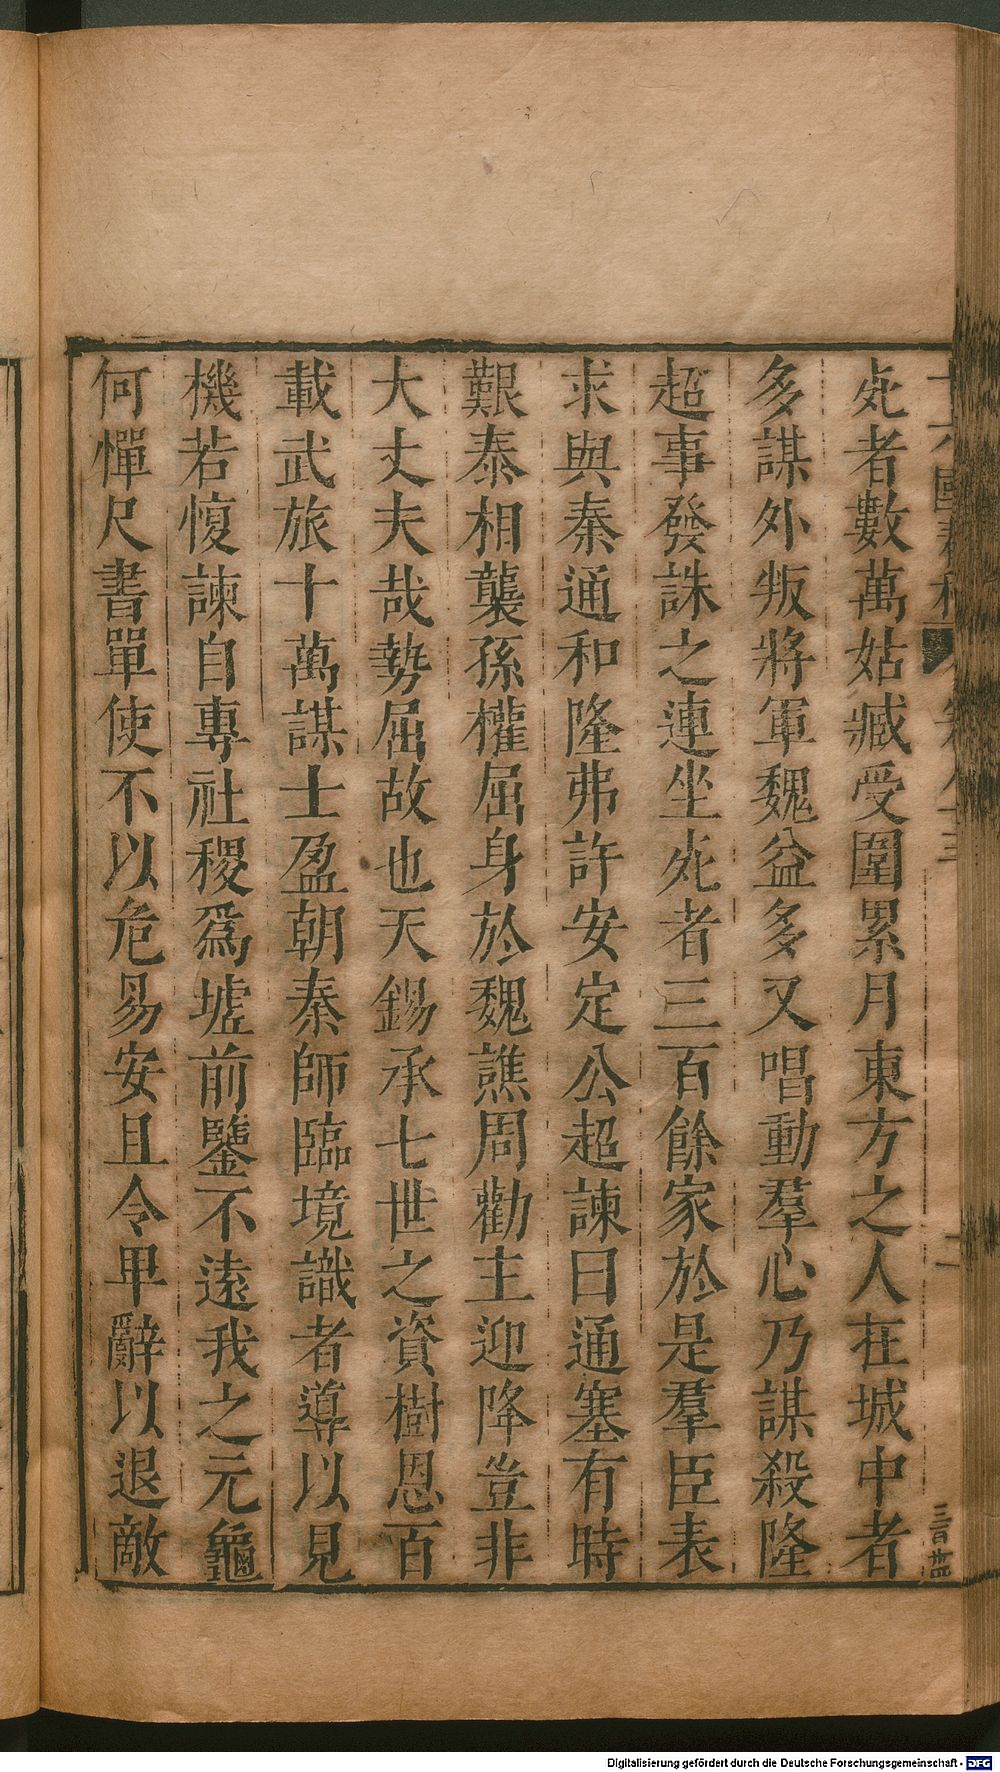 死者數萬姑臧受圍累月東方之人在城中者
多謀外叛將軍魏益多又唱動羣心乃謀殺隆
超事發誅之連坐死者三百餘家於是羣臣表
求與秦通和隆弗許安定公超諫曰通塞有時
艱泰相襲孫權屈身於魏譙周勸主迎降豈非
大丈夫哉勢屈故也天錫承七世之資樹恩百
載武旅十萬謀士盈朝秦師臨境識者導以見
機若愎諫自專社稷爲墟前鑒不遠我之元龜
何憚尺書單使不以危易安且令卑辭以退敵
Digitalisierung gefördert durch die Deutsche Forschungsgemeinschaft - DFG